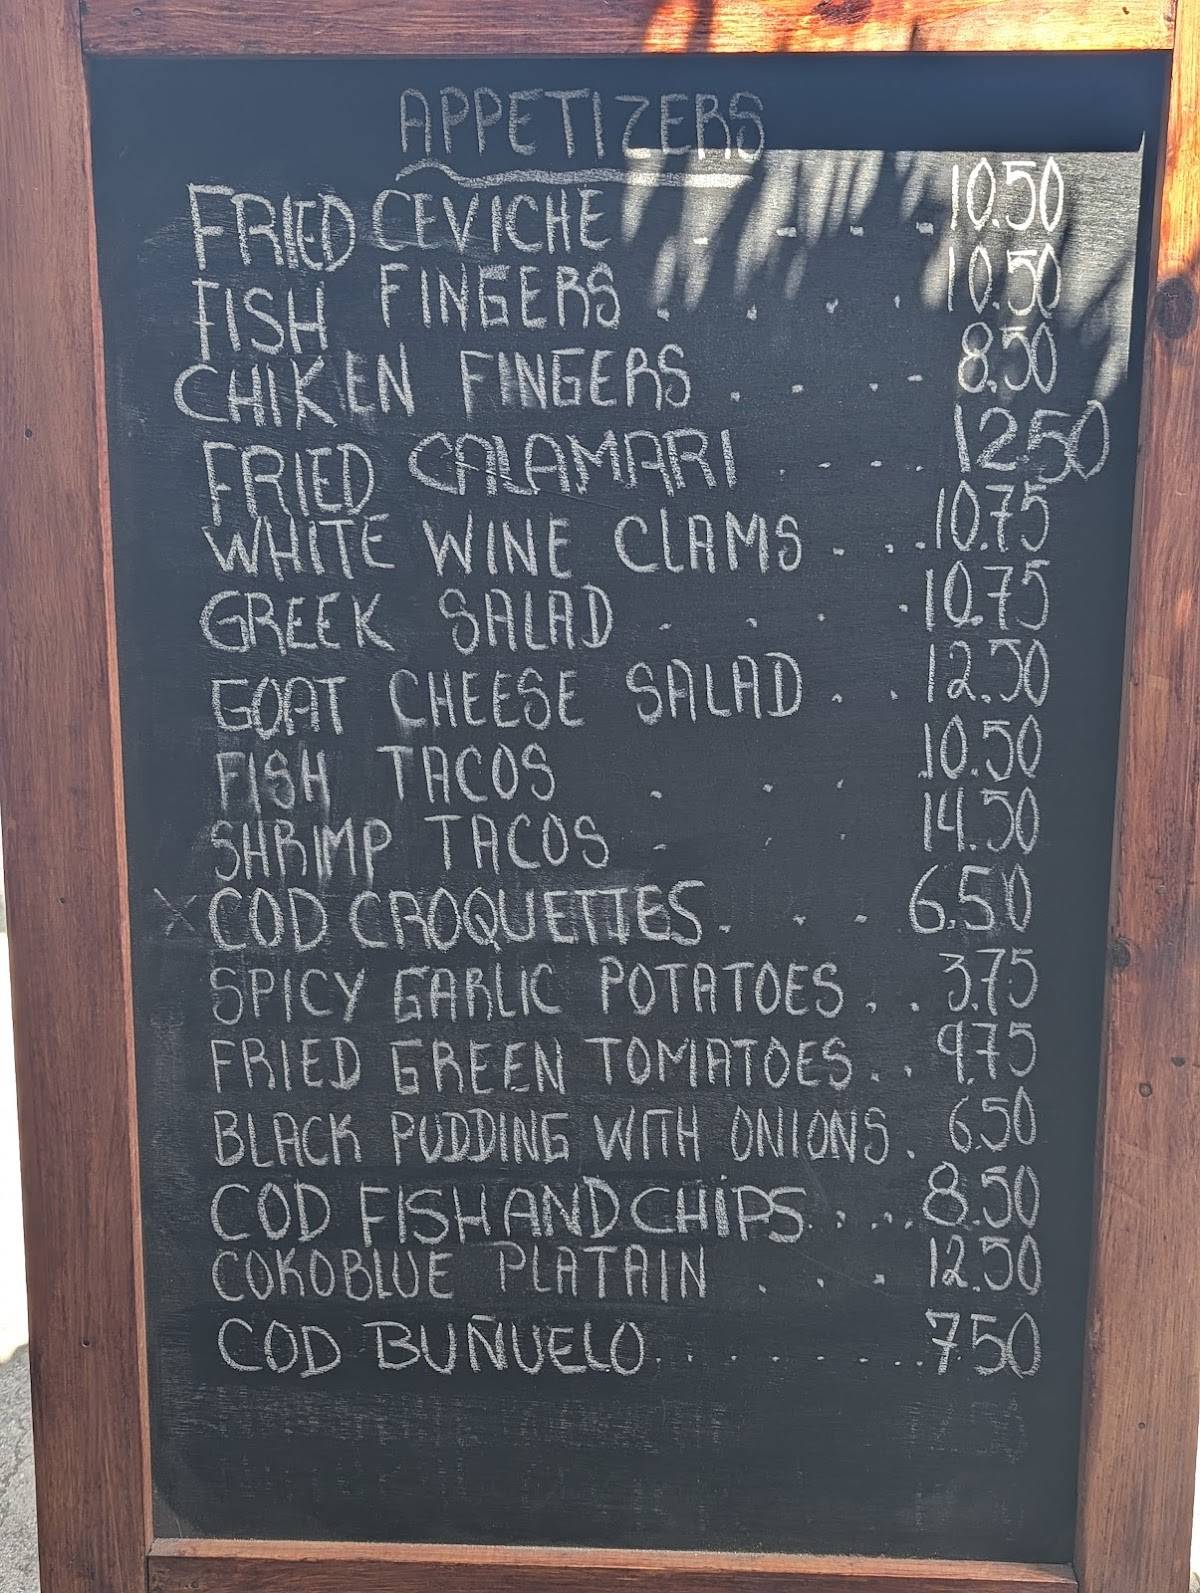 APPETIZERS
FRIED CEVICHE - - - - 10.50
FISH FINGERS . . . . 10.50
CHIKEN FINGERS . . . . 8.50
FRIED CALAMARI . . . . 12.50
WHITE WINE CLAMS . . . . 10.75
GREEK SALAD . . . . 10.75
GOAT CHEESE SALAD . . 12.50
FISH TACOS . . . 10.50
SHRIMP TACOS . . . 14.50
X COD CROQUETTES . . . 6.50
SPICY GARLIC POTATOES . . 3.75
FRIED GREEN TOMATOES . . 9.75
BLACK PUDDING WITH ONIONS . 6.50
COD FISH AND CHIPS . . . . . 8.50
COKOBLUE PLATAIN . . . 12.50
COD BUÑUELO . . . . . . . . 7.50